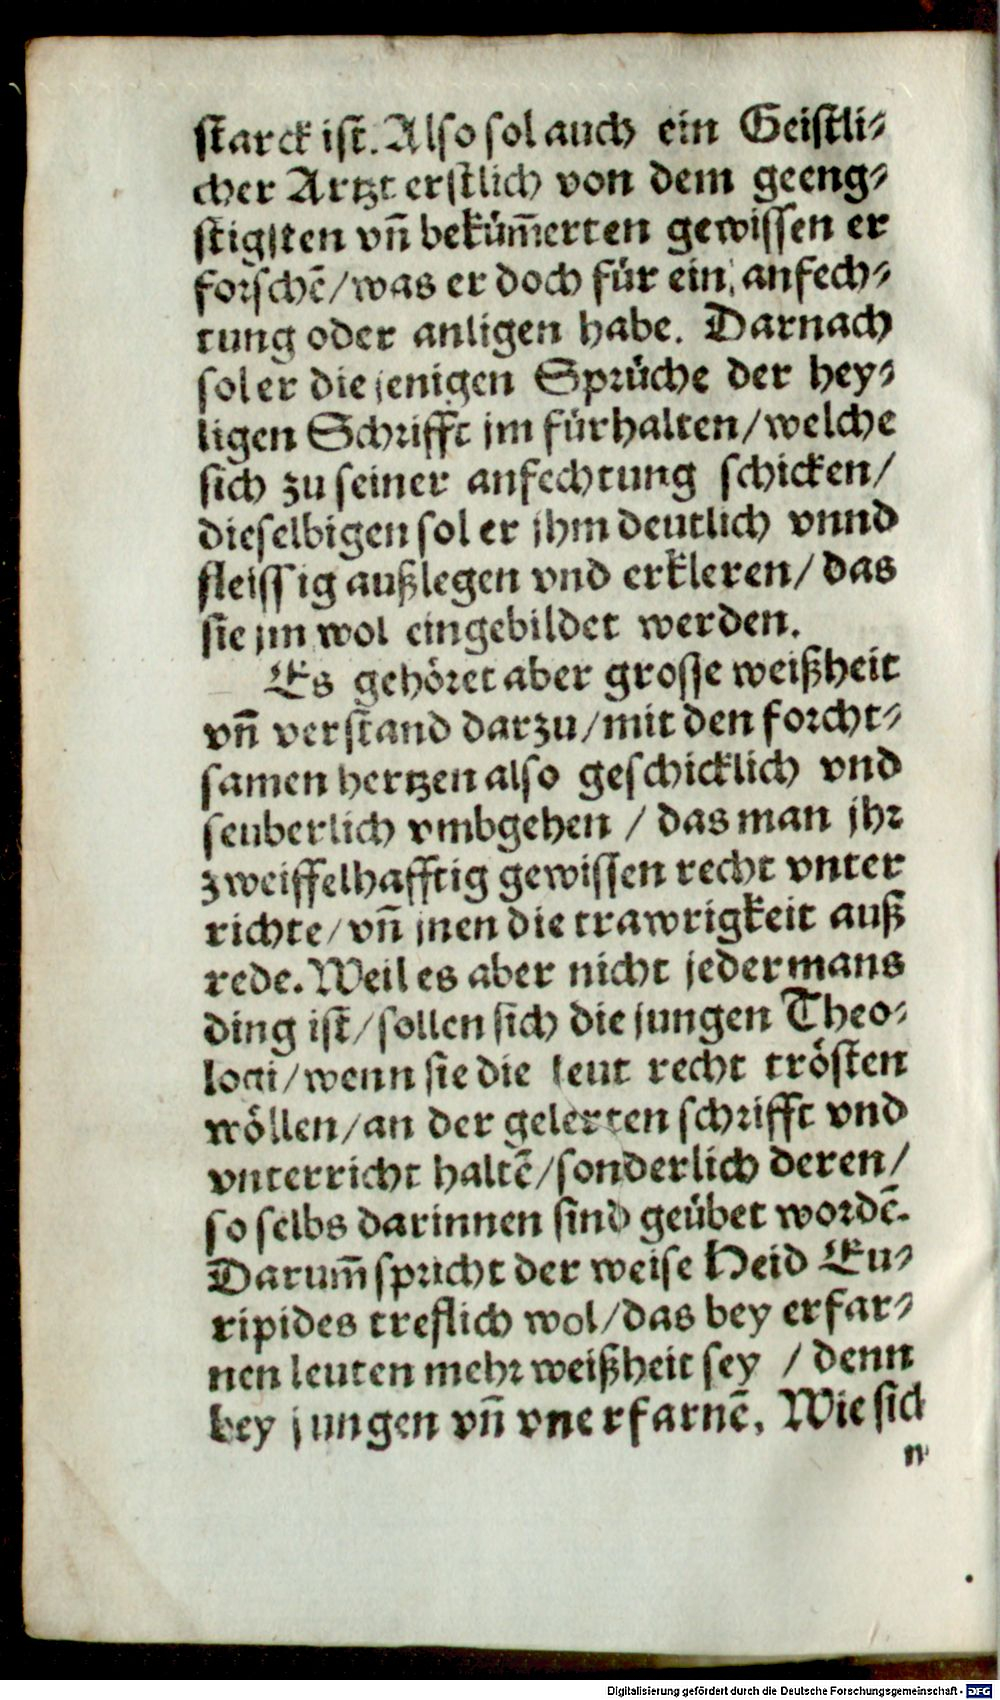 starck ist. Also sol auch ein Geistli⸗
cher Artzt erstlich von dem geeng⸗
stigsten vñ bekům̃erten gewissen er
forschẽ/was er doch für ein anfech⸗
tung oder anligen habe. Darnach
sol er die jenigen Sprüche der hey⸗
ligen Schrifft jm fürhalten/welche
sich zu seiner anfechtung schicken/
dieselbigen sol er jhm deutlich vnnd
fleissig außlegen vnd erkleren/das
sie jm wol eingebildet werden.
Es gehöret aber grosse weißheit
vñ verstand darzu/mit den forcht⸗
samen hertzen also geschicklich vnd
seuberlich vmbgehen / das man jhr
zweiffelhafftig gewissen recht vnter
richte/vñ jnen die trawrigkeit auß
rede. Weil es aber nicht jedermans
ding ist/sollen sich die jungen Theo⸗
logi/wenn sie die leut recht trösten
wöllen/an der gelerten schrifft vnd
vnterricht haltẽ/sonderlich deren/
so selbs darinnen sind geübet wordẽ.
Darum̃ spricht der weise Heid Eu⸗
ripides treflich wol/das bey erfar⸗
nen leuten mehr weißheit sey / denn
bey jungen vñ vnerfarnẽ. Wie sich
Digitalisierung gefördert durch die Deutsche Forschungsgemeinschaft - DFG